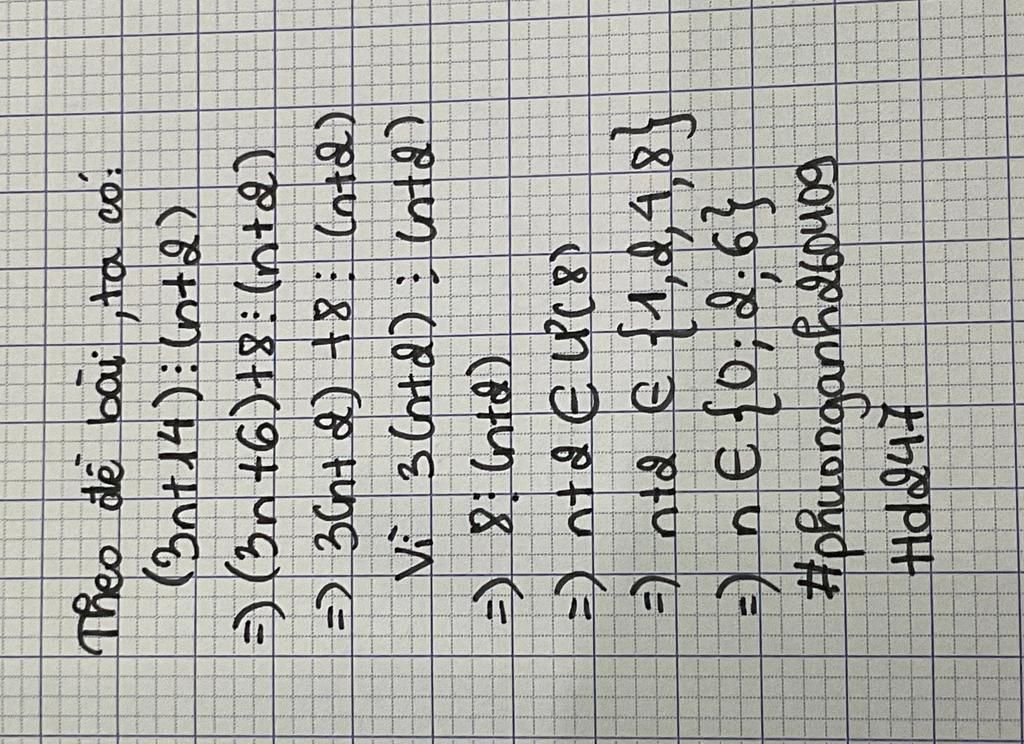 Theo đề bài, ta có:
(3n+14)⋮(n+2)
=) (3n+6)+8⋮(n+2)
=) 3(n+2) +8⋮(n+2)
Vì 3(n+2)⋮(n+2)
=) 8⋮(n+2)
=) n+2 ∈ Ư(8)
=) n+2 ∈ {1,2,4,8}
=) n ∈ {0;2;6}
#phuonganh260409
Hd247